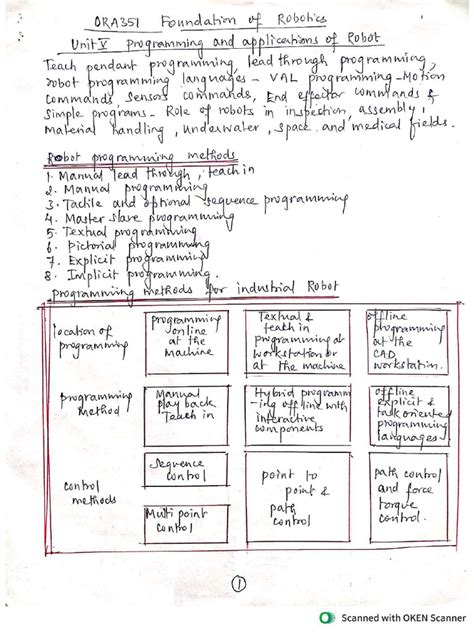 ORA351 Foundation of Robotics
Unit V programming and applications of Robot
Teach pendant programming, lead through programming,
robot programming languages - VAL programming - Motion
Commands, Sensors commands, End effector commands &
Simple programs - Role of robots in inspection, assembly,
Material handling, underwater, space and medical fields.
Robot programming methods
1. Manual lead through, teach in
2. Manual programming
3. Tactile and optional sequence programming
4. Master slave programming
5. Textual programming
6. Pictorial programming
7. Explicit programming
8. Implicit programming.
programming methods for industrial Robot
location of
programming
programming
online
at the
Machine
Textual &
teach in
programming at
workstation or
at the machine
offline
programming
at the
CAD
workstation.
programming
method
Manual
play back
Teach in
Hybrid programm
-ing offline with
interactive
components
offline
explicit &
task oriented
programming
languages
control
methods
Sequence
control
Multi point
control
point to
point &
path
control
path control
and force
torque
control.
1
Scanned with OKEN Scanner